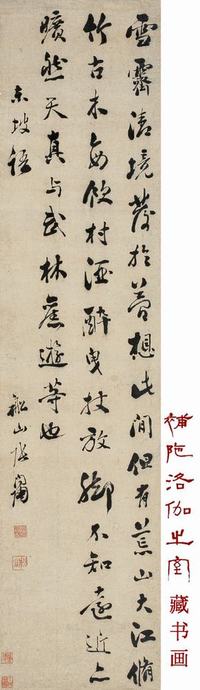 雪霽清境發於夢想此間但有荒山大江脩
竹古木每飲村酒醉曳杖放腳不知遠近亦
曠然天真與武林舊遊等也
東坡語
船山張問陶
補陀洛伽之室藏书画